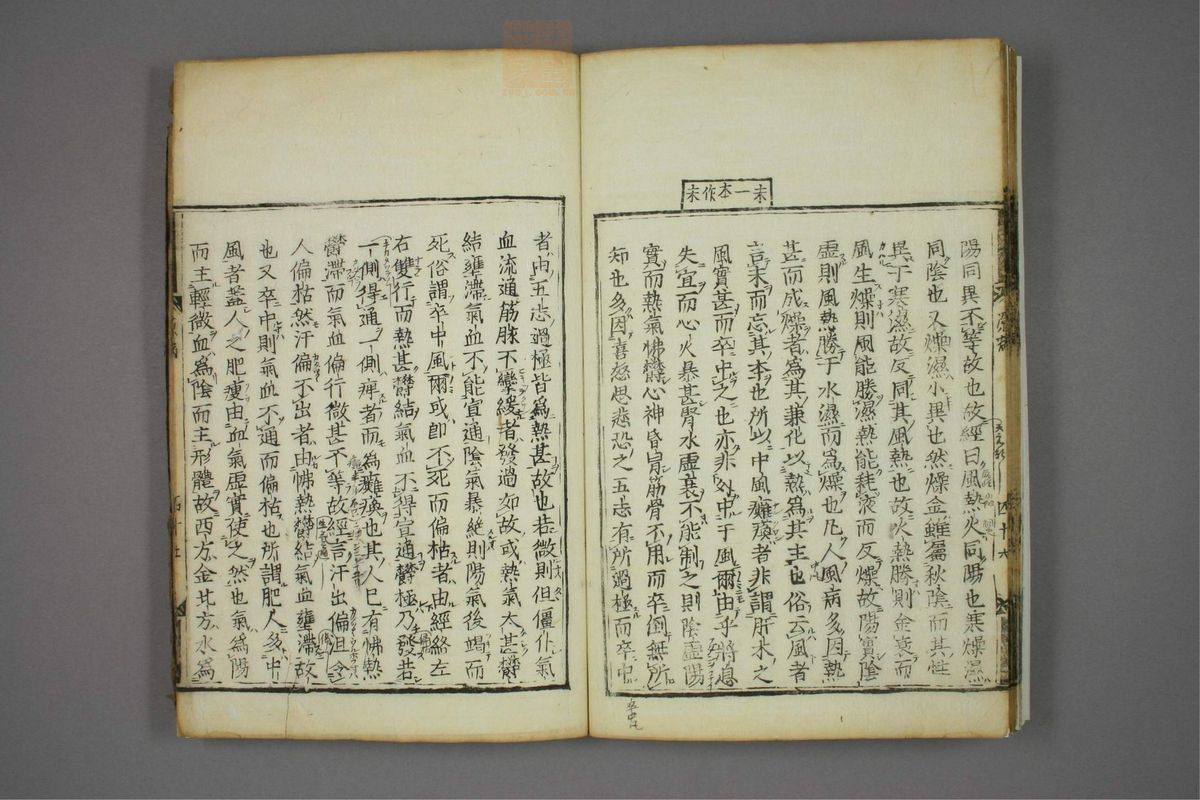 末一本作末
陽同異不等故也故經曰風熱火同陽也寒燥濕
同陰也又燥濕小異也然燥金雖屬秋陰而其性
異于寒濕故反同其風熱也故火熱勝則金衰而
風生燥則風能勝濕熱能耗液而反燥故陽實陰
虛則風熱勝于水濕而爲燥也凡人風病多因熱
甚而成燥者爲其兼化以熱爲其主也俗云風者
言末而忘其本也所以中風癱瘓者非謂肝木之
風實甚而卒中之也亦非外中于風爾由乎將息
失宜而心火暴甚腎水虛衰不能制之則陰虛陽
實而熱氣怫鬱心神昏冒筋骨不用而卒倒無所
知也多因喜怒思悲恐之五志有所過極而卒中
者由五志過極皆爲熱甚故也若微則但僵仆氣
血流通筋脉不攣緩者發過如故或熱氣太甚鬱
結壅滯氣血不能宣通陰氣暴絕則陽氣後竭而
死俗謂卒中風爾或卽不死而偏枯者由經絡左
右雙行而熱甚鬱結氣血不得宣通鬱極乃發若
一側得通一側痺者而爲癱瘓也其人巳有怫熱
鬱滯而氣血偏行微甚不等故經言汗出偏沮令
人偏枯然汗偏不出者由怫熱鬱結氣血壅滯故
也又卒中則氣血不通而偏枯也所謂肥人多中
風者蓋人之肥瘦由血氣虛實使之然也氣爲陽
而主輕微血爲陰而主形體故西方金北方水爲